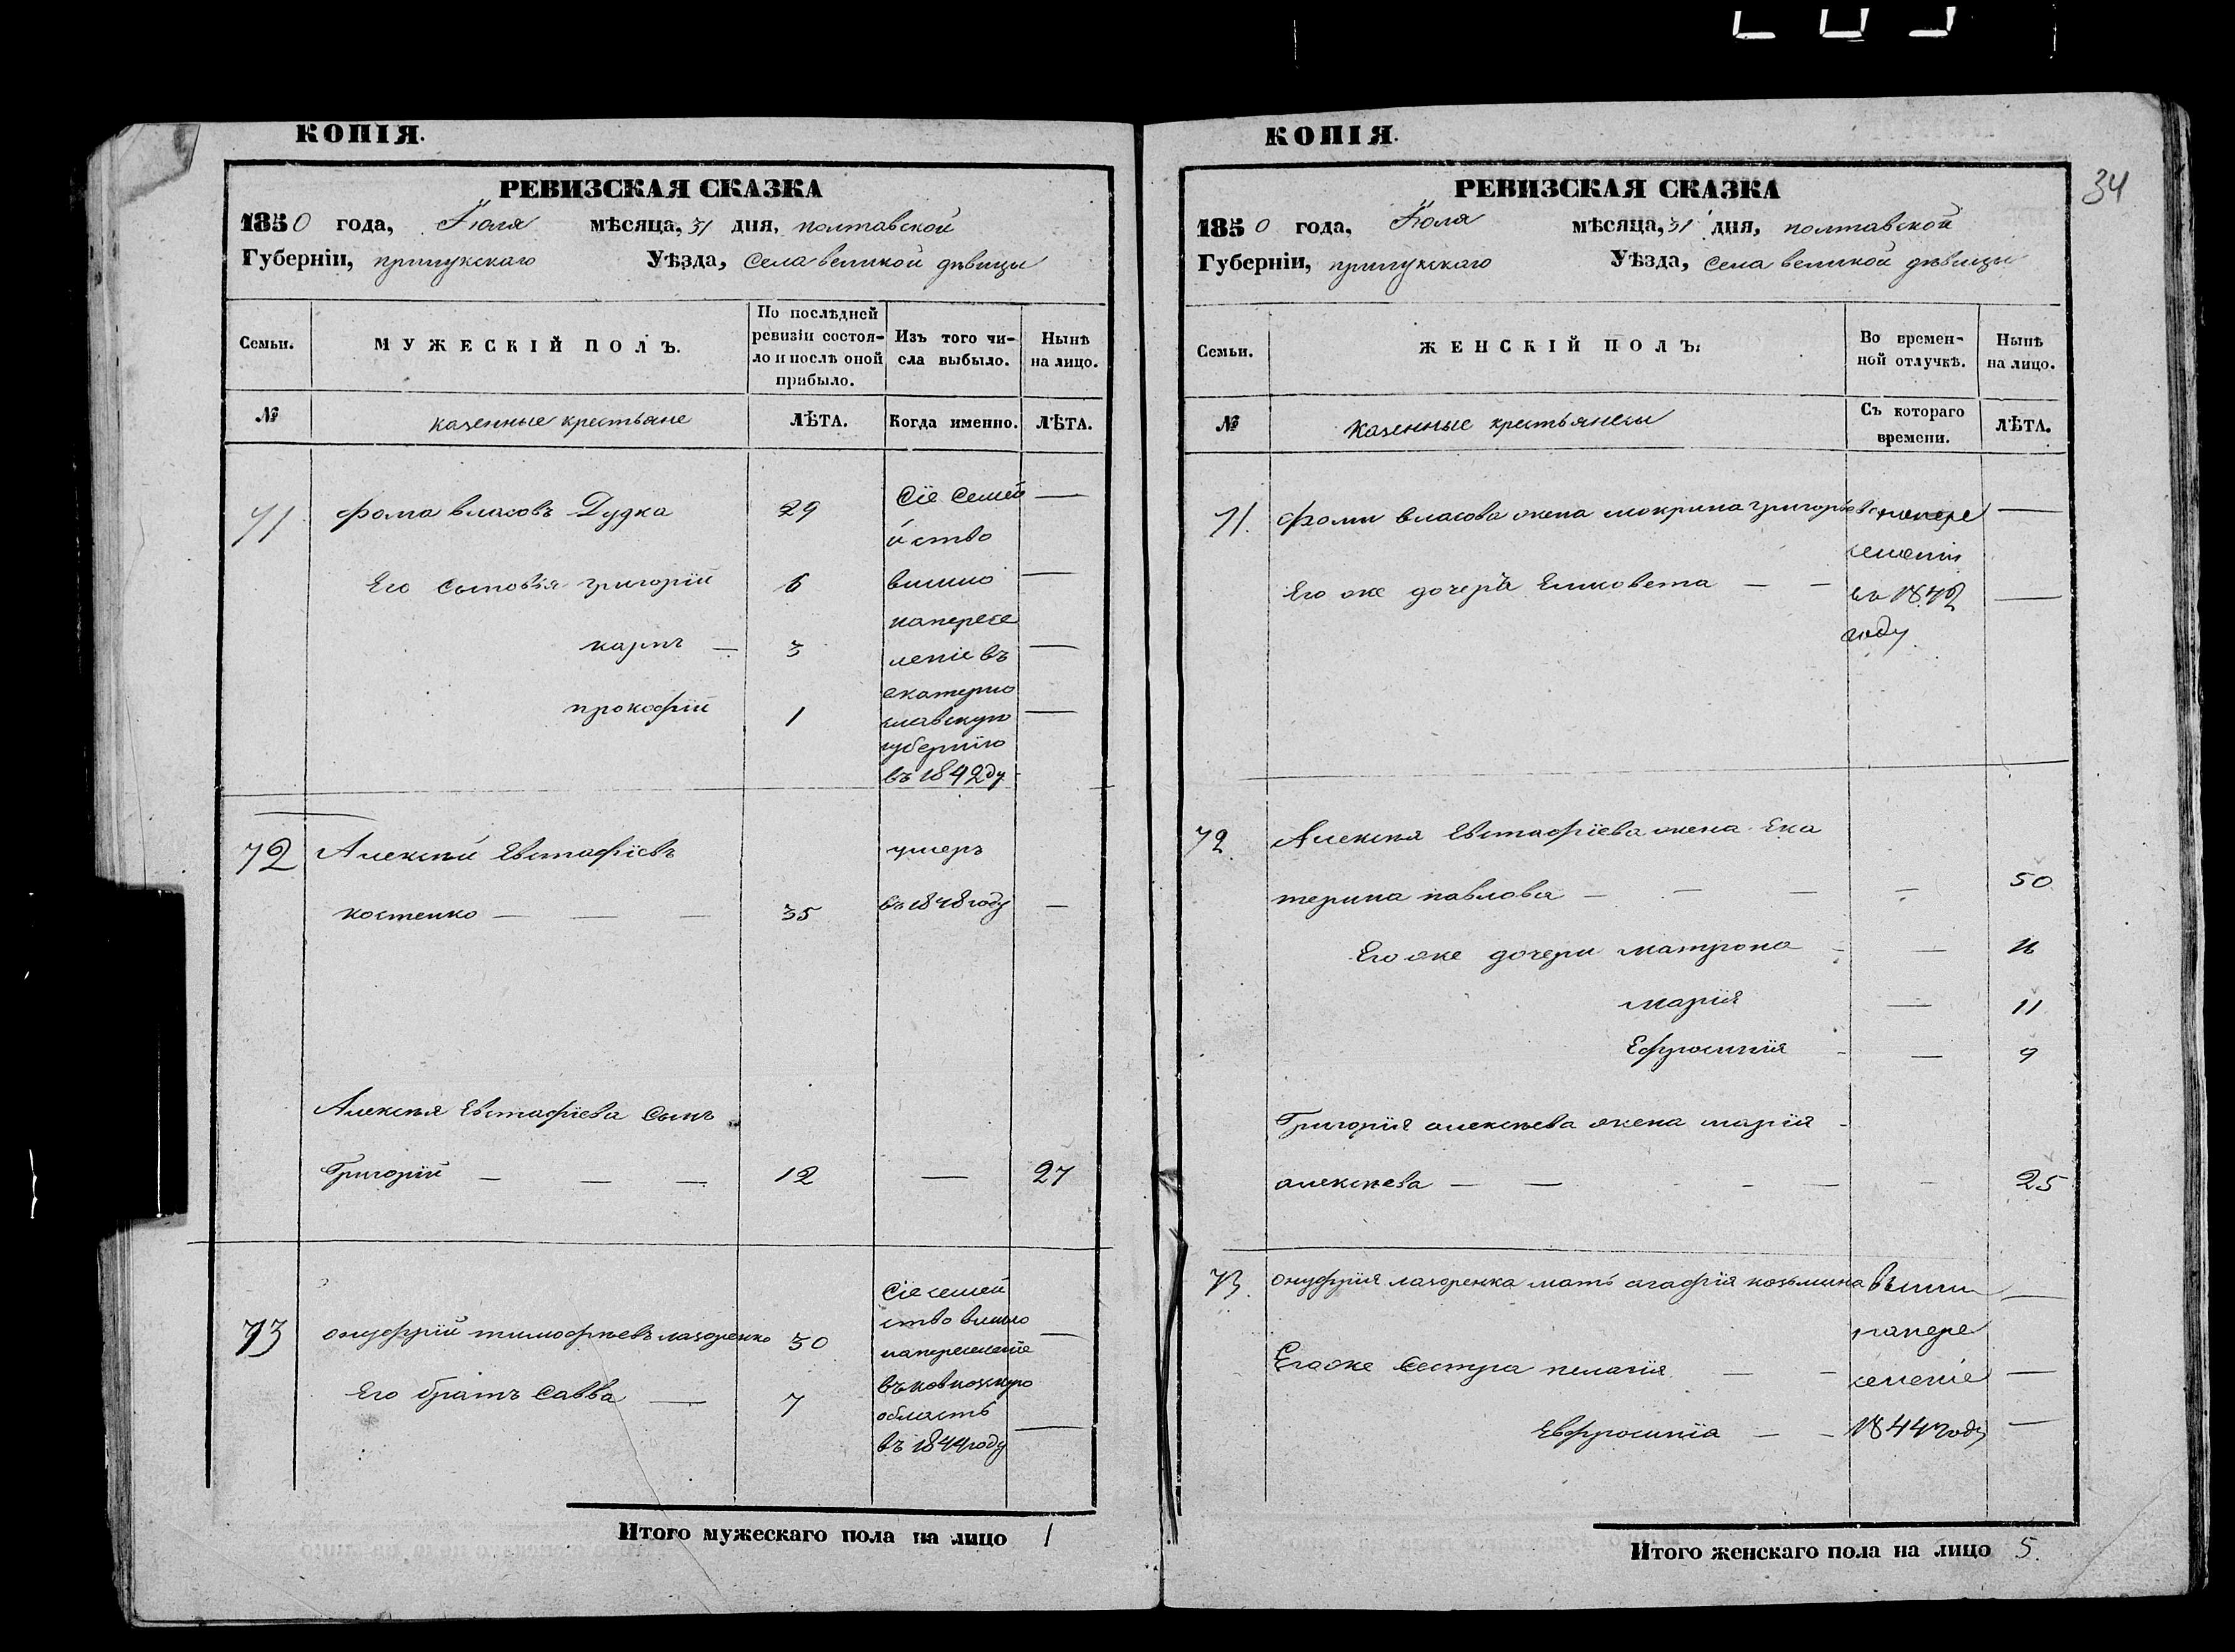 КОПІЯ.
РЕВИЗСКАЯ СКАЗКА
1850 года, Іюля мѣсяца, 31 дня, полтавской
Губерніи, прилукскаго Уѣзда, села великой дѣвицы
Семьи.
МУЖЕСКІЙ ПОЛЪ.
По послѣдней
ревизіи состоя-
ло и послѣ оной
прибыло.
Изъ того чи-
сла выбыло.
Нынѣ
на лицо.
№
казенные крестьяне
ЛѢТА.
Когда именно.
ЛѢТА.
71 фома власовъ Дудка 29 —
Его сыновья григорій 6 —
карпъ — 3 —
прокофій 1 —
Сіе семей
й ство
вышло
напересе
леніе въ
екатерино
славскую
губернію
въ 1842 ду
72 Алексѣй Евстафіевъ умеръ
костенко — — — 35 въ 1848 году —
Алексѣя Евстафіева сынъ
Григорій — — — 12 — 27
73 онуфрій тимофѣевъ лазоренко 30 —
Его братъ савва — 7 —
Сіе семей
ство вышло
напереселеніе
въ
область
въ 1844 году
Итого мужескаго пола на лицо 1
КОПІЯ.
34
РЕВИЗСКАЯ СКАЗКА
1850 года, Іюля мѣсяца, 31 дня, полтавской
Губерніи, прилукскаго Уѣзда, села великой дѣвицы
Семьи.
ЖЕНСКІЙ ПОЛЪ.
Во времен-
ной отлучкѣ.
Нынѣ
на лицо.
№
Казенные крестьянки
Съ котораго
времени.
ЛѢТА.
71. фомы власова жена мокрина григорьева —
Его же дочеръ Елисовета — — —
напере
селеніи
въ 1842
году
72. Алексѣя Евстафіева жена Ека
терина павлова — — — — 50
Его же дочери матрона — — 16
марія — 11
Ефросинія — — 9
Григорія алексѣева жена марія -
алексѣева — — - — - 25
73. онуфрія лазоренка мать агафія козьмина —
Его же сестра пелагія — — —
Евфросинія — — —
вышли
напере
селеніе
1844 году
Итого женскаго пола на лицо 5.